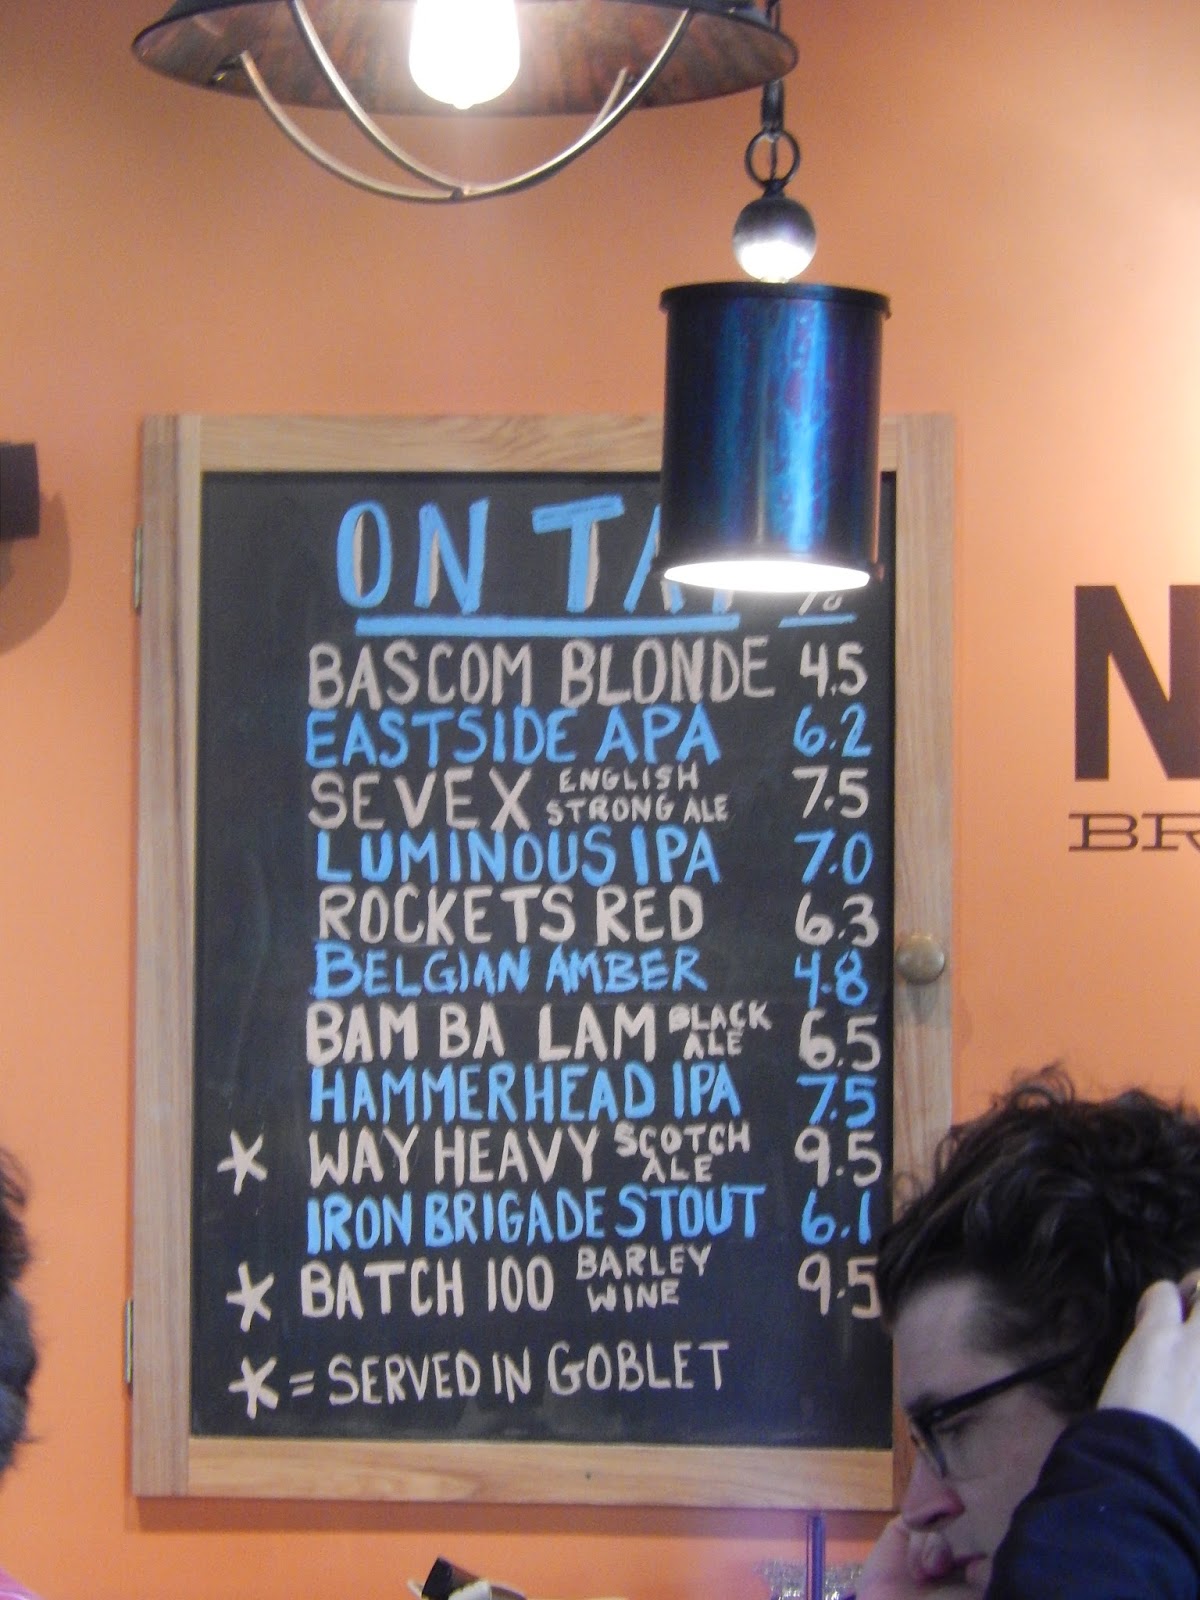 ON TAP %
BASCOM BLONDE 4.5
EASTSIDE APA 6.2
SEVEX ENGLISH STRONG ALE 7.5
LUMINOUS IPA 7.0
ROCKETS RED 6.3
BELGIAN AMBER 4.8
BAM BA LAM BLACK ALE 6.5
HAMMERHEAD IPA 7.5
* WAY HEAVY SCOTCH ALE 9.5
IRON BRIGADE STOUT 6.1
* BATCH 100 BARLEY WINE 9.5
* = SERVED IN GOBLET
N
BR